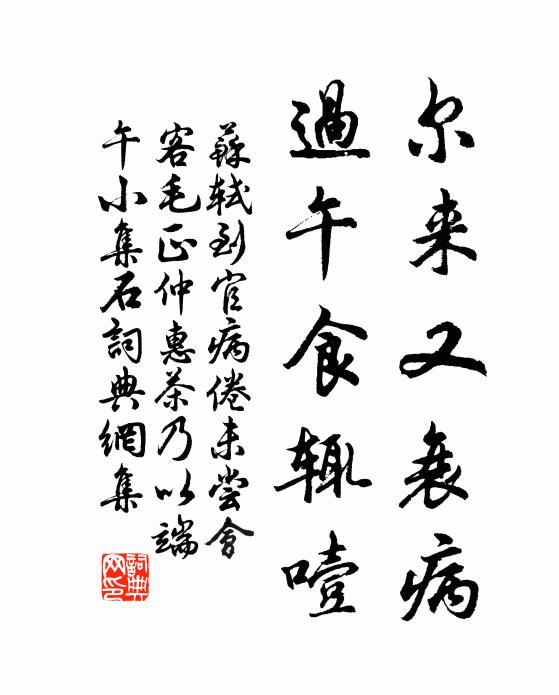 尔来又衰病
過午食辄噎
蘇轼到官病倦未尝會
客毛正仲惠茶乃以端
午小集石詞典網集
詞典網印